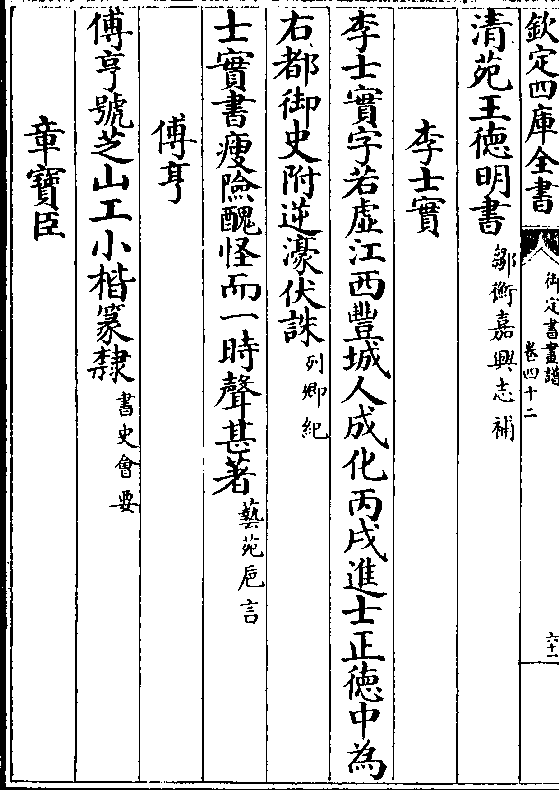 欽定四庫全書
御定書畫譜
卷四十二
六十一
清苑王德明書鄒衡嘉興志補
李士實
李士實字若虛江西豐城人成化丙戌進士正德中為
右都御史附逆濠伏誅列卿紀
士實書瘦險醜怪而一時聲甚著藝苑巵言
傅亨
傅亨號芝山工小楷篆隸書史會要
章寶臣